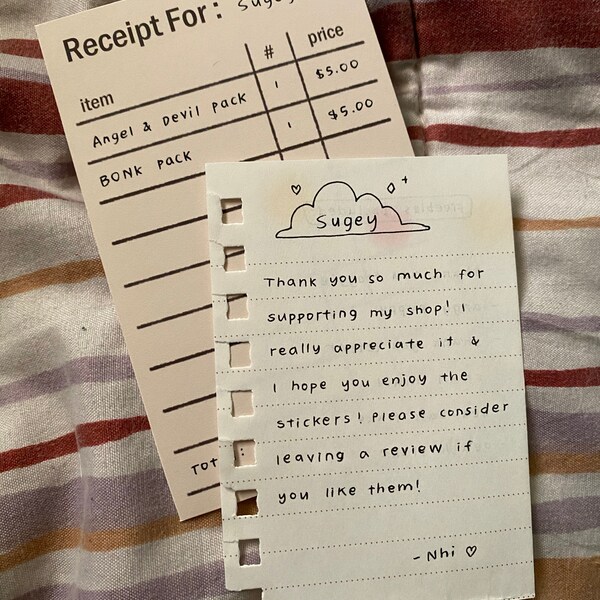 Receipt For: Sugey
item # price
Angel & Devil pack 1 $5.00
BONK pack 1 $5.00
TOT
:
Sugey
Thank you so much for
supporting my shop! I
really appreciate it &
I hope you enjoy the
stickers! Please consider
leaving a review if
you like them!
- Nhi ♡